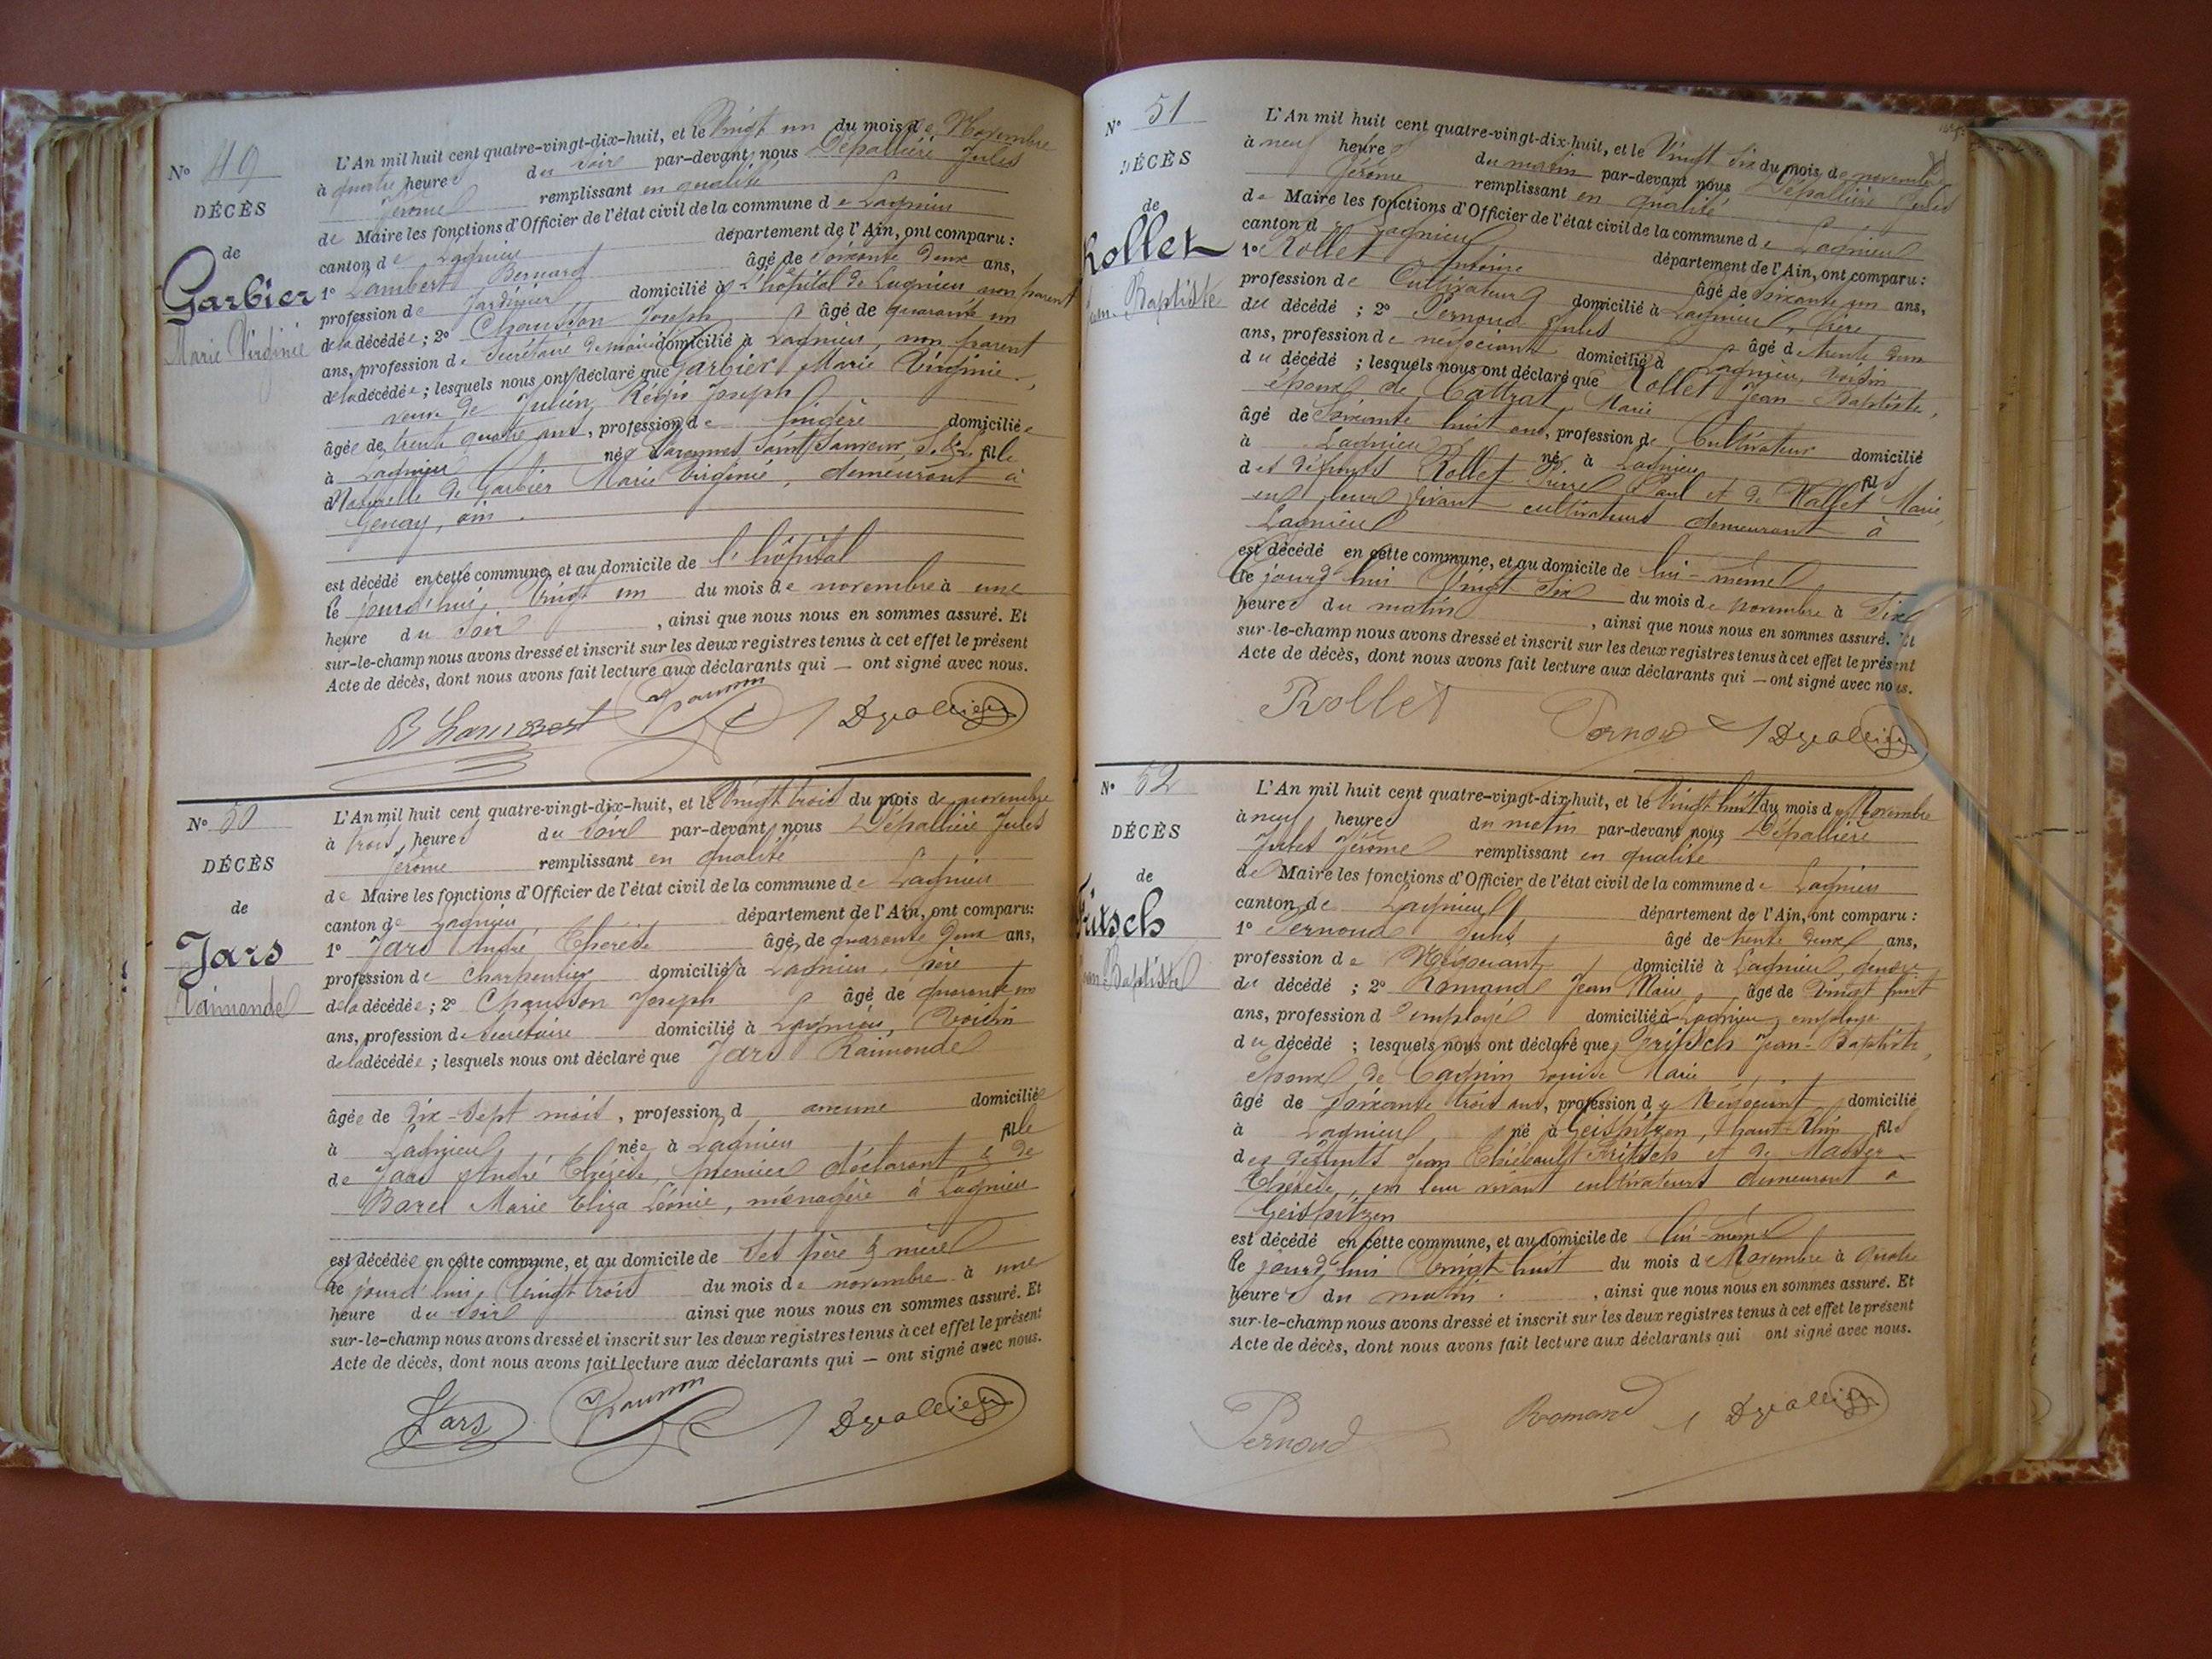 N° 49
DÉCÈS
de
Garbier
Marie Virginie
L'An mil huit cent quatre-vingt-dix-huit, et le Vingt un du mois de Novembre
à quatre heures du soir par-devant nous Dépallière Jules
Jérôme remplissant en qualité
de Maire les fonctions d'Officier de l'état civil de la commune de Lagnieu
canton de Lagnieu département de l'Ain, ont comparu :
1° Lambert Bernard âgé de soixante deux ans,
profession de Jardinier domicilié à l'hôpital de Lagnieu non parent
de la décédée ; 2° Chausson Joseph âgé de quarante un
ans, profession de Secrétaire de mairie domicilié à Lagnieu, non parent
de la décédée ; lesquels nous ont déclaré que Garbier Marie Virginie,
veuve de Julien Régis Joseph
âgée de trente quatre ans, profession de lingère domiciliée
à Lagnieu née à Varennes Saint Sauveur, S. & L. fille
naturelle de Garbier Marie Virginie, demeurant à
Genay, ain.
est décédé en cette commune, et au domicile de l'hôpital
le jourd'hui, vingt un du mois de novembre à une
heure du soir, ainsi que nous nous en sommes assuré. Et
sur-le-champ nous avons dressé et inscrit sur les deux registres tenus à cet effet le présent
Acte de décès, dont nous avons fait lecture aux déclarants qui — ont signé avec nous.
N° 50
DÉCÈS
de
Jars
Raimonde
L'An mil huit cent quatre-vingt-dix-huit, et le Vingt trois du mois de novembre
à trois heures du soir par-devant nous Dépallière Jules
Jérôme remplissant en qualité
de Maire les fonctions d'Officier de l'état civil de la commune de Lagnieu
canton de Lagnieu département de l'Ain, ont comparu :
1° Jars André Thérèse âgé de quarante deux ans,
profession de charpentier domicilié à Lagnieu, père
de la décédée ; 2° Chausson Joseph âgé de quarante un
ans, profession de Secrétaire domicilié à Lagnieu, voisin
de la décédée ; lesquels nous ont déclaré que Jars Raimonde
âgée de dix-sept mois, profession d aucune domiciliée
à Lagnieu née à Lagnieu fille
de Jars André Thérèse, premier déclarant & de
Barel Marie Eliza Léonie, ménagère à Lagnieu
est décédée en cette commune, et au domicile de ses père & mère
le jourd'hui, vingt trois du mois de novembre à une
heure du soir ainsi que nous nous en sommes assuré. Et
sur-le-champ nous avons dressé et inscrit sur les deux registres tenus à cet effet le présent
Acte de décès, dont nous avons fait lecture aux déclarants qui — ont signé avec nous.
Jars
N° 51
DÉCÈS
de
Rollet
Jean Baptiste
L'An mil huit cent quatre-vingt-dix-huit, et le Vingt six du mois de novembre
à neuf heures du matin par-devant nous Dépallière Jules
Jérôme remplissant en qualité
de Maire les fonctions d'Officier de l'état civil de la commune de Lagnieu
canton de Lagnieu département de l'Ain, ont comparu :
1° Rollet Antoine âgé de soixante un ans,
profession de Cultivateur domicilié à Lagnieu, frère
du décédé ; 2° Pernoud Jules âgé de trente deux
ans, profession de négociant domicilié à Lagnieu, voisin
du décédé ; lesquels nous ont déclaré que Rollet Jean-Baptiste,
époux de Cottrat, Marie
âgé de soixante huit ans, profession de Cultivateur domicilié
à Lagnieu né à Lagnieu fils
des défunts Rollet Pierre Paul et de Rollet Marie,
en leur vivant cultivateurs demeurant à
Lagnieu
est décédé en cette commune, et au domicile de lui-même
le jourd'hui Vingt six du mois de novembre à six
heures du matin, ainsi que nous nous en sommes assuré. Et
sur-le-champ nous avons dressé et inscrit sur les deux registres tenus à cet effet le présent
Acte de décès, dont nous avons fait lecture aux déclarants qui — ont signé avec nous.
Rollet Pernoud
N° 52
DÉCÈS
de
Fritsch
Jean-Baptiste
L'An mil huit cent quatre-vingt-dix-huit, et le Vingt huit du mois de Novembre
à neuf heures du matin par-devant nous Dépallière
Jules Jérôme remplissant en qualité
de Maire les fonctions d'Officier de l'état civil de la commune de Lagnieu
canton de Lagnieu département de l'Ain, ont comparu :
1° Pernoud Jules âgé de trente deux ans,
profession de Négociant domicilié à Lagnieu, gendre
du décédé ; 2° Romand Jean Marie âgé de vingt huit
ans, profession d'employé domicilié à Lagnieu, employé
du décédé ; lesquels nous ont déclaré que Fritsch Jean-Baptiste,
époux de Cagnin Louise Marie
âgé de soixante trois ans, profession de Négociant domicilié
à Lagnieu né à Geispitzen, Haut-Rhin fils
des défunts Jean Thiébault Fritsch et de Masser
Thérèse, en leur vivant cultivateurs demeurant à
Geispitzen
est décédé en cette commune, et au domicile de lui-même
le jourd'hui Vingt huit du mois de Novembre à quatre
heures du matin, ainsi que nous nous en sommes assuré. Et
sur-le-champ nous avons dressé et inscrit sur les deux registres tenus à cet effet le présent
Acte de décès, dont nous avons fait lecture aux déclarants qui ont signé avec nous.
Pernoud Romand